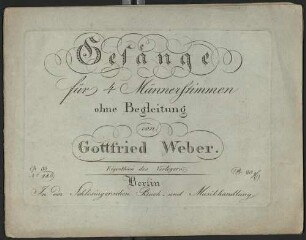 Gesänge
für 4 Männerstimmen
ohne Begleitung
von
Gottfried Weber.
Eigenthum des Verlegers.
Berlin
In der Schlesinger'schen Buch- und Musikhandlung